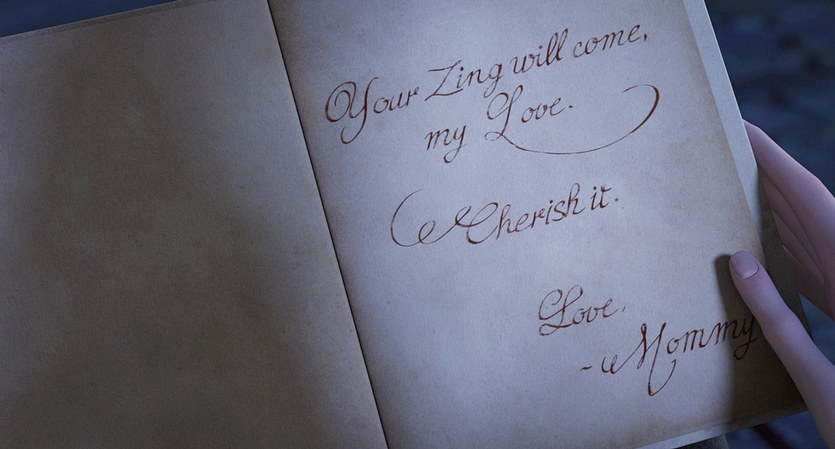 Your Zing will come,
my Love.
Cherish it.
Love,
- Mommy